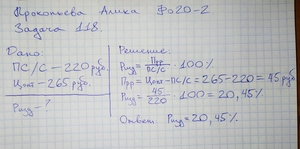 Прокопьева Алика Фо20-2
Задача 118.
Дано:
ПС/С – 220 руб.
Цопт – 265 руб.
Ризд – ?
Решение:
Ризд = Прр/ПС/С · 100%
Прр = Цопт - ПС/С = 265 - 220 = 45 руб
Ризд = 45/220 · 100 = 20,45%
Ответ: Ризд = 20,45%